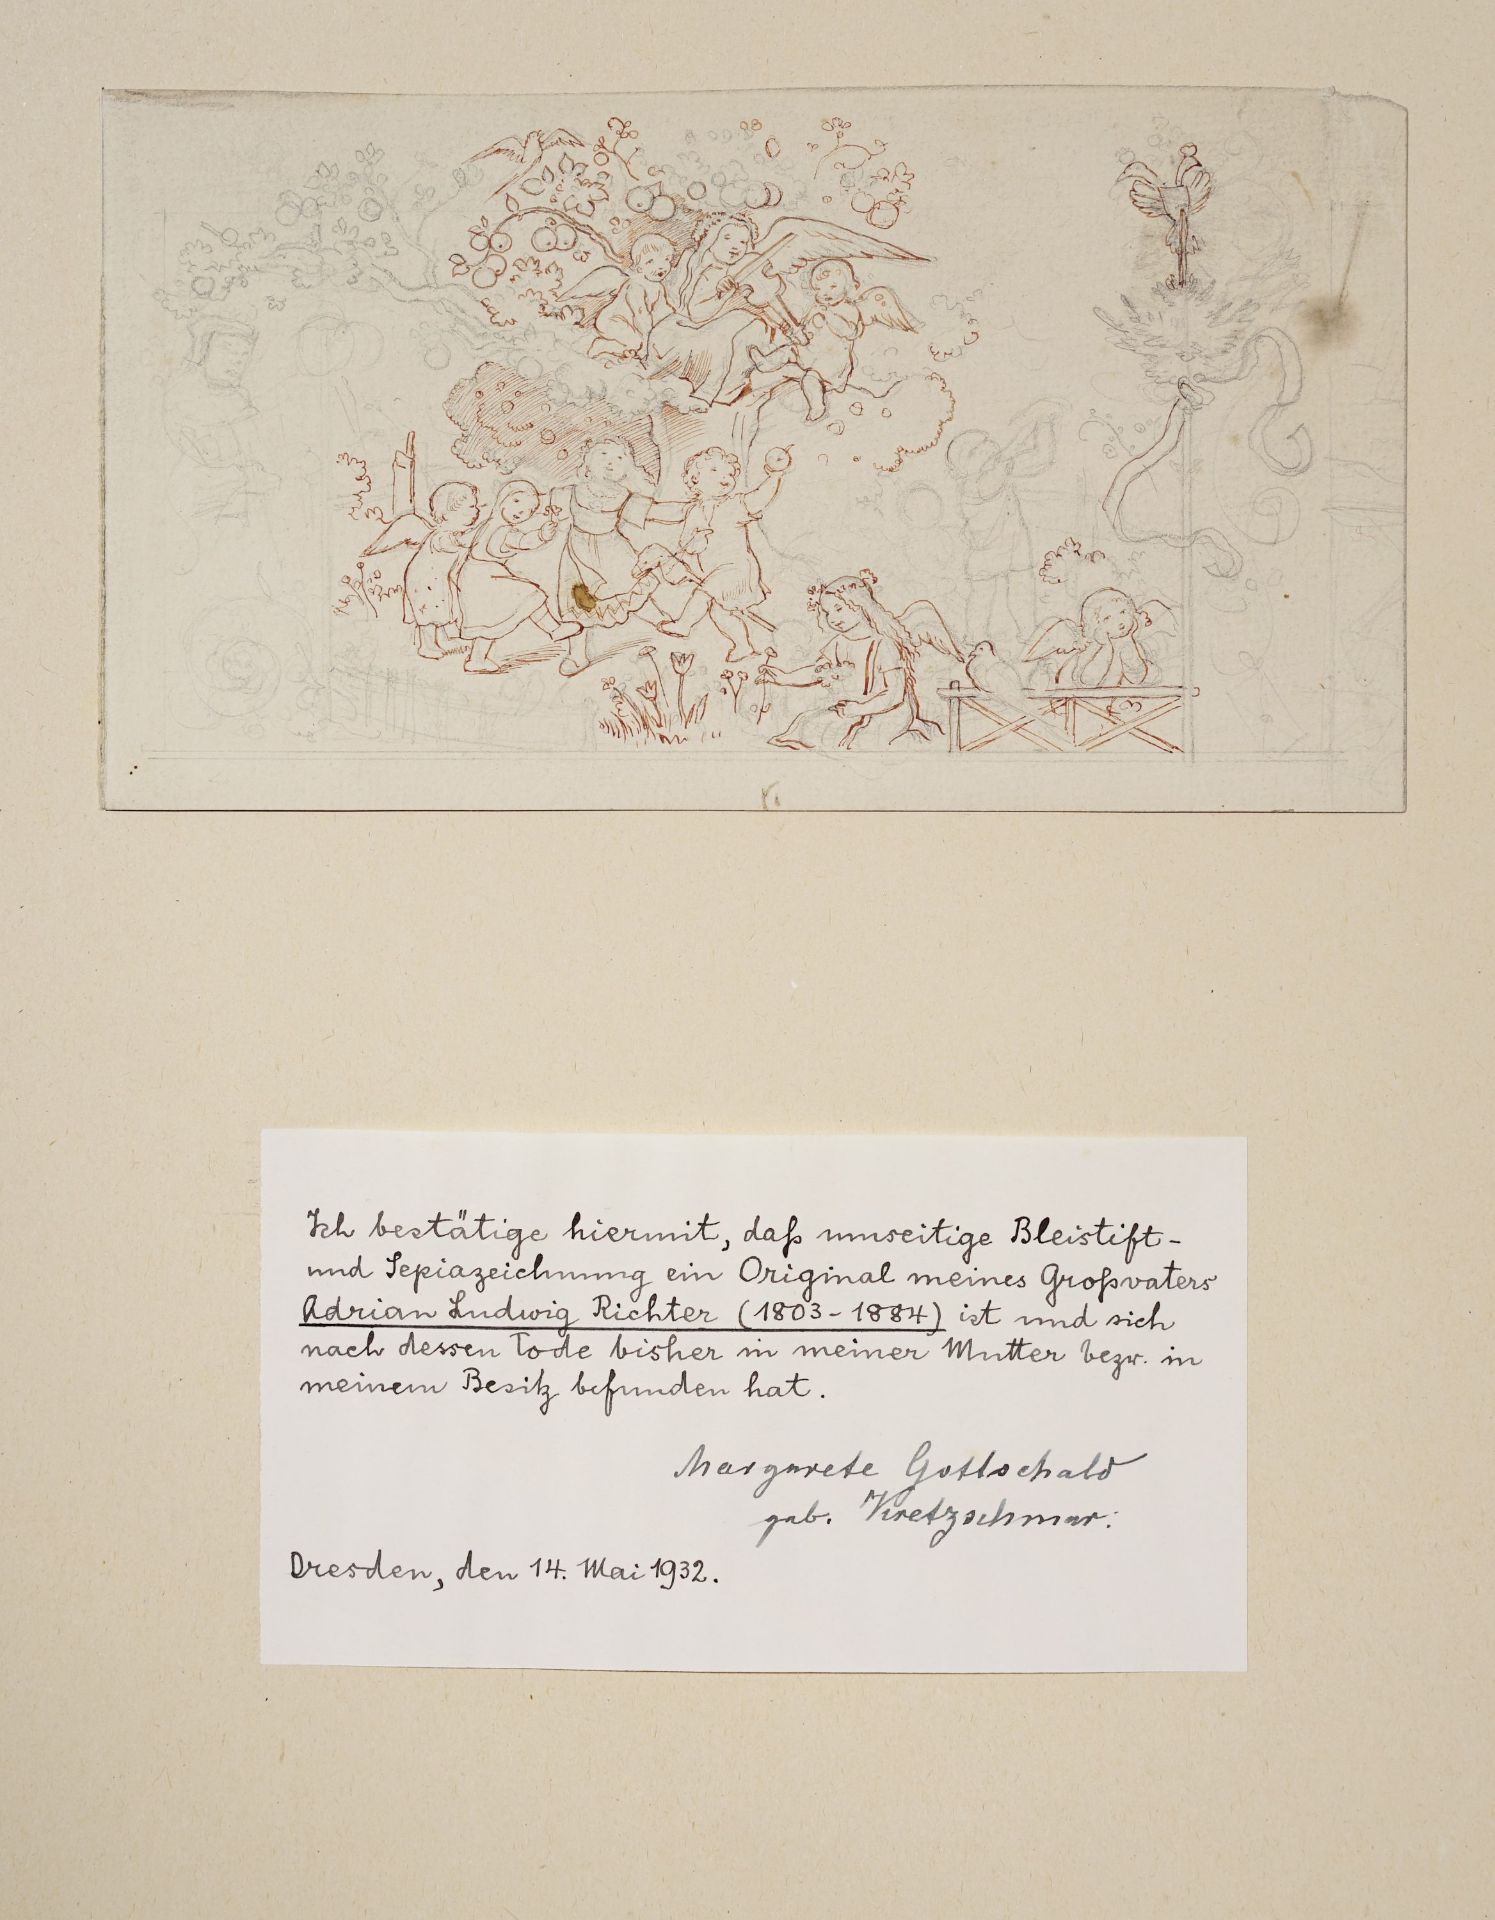 Ich bestätige hiermit, daß umseitige Bleistift-
und Sepiazeichnung ein Original meines Großvaters
Adrian Ludwig Richter (1803-1884) ist und sich
nach dessen Tode bisher in meiner Mutter bezw. in
meinem Besitz befunden hat.
Margarete Gottschald
geb. Kretzschmar.
Dresden, den 14. Mai 1932.